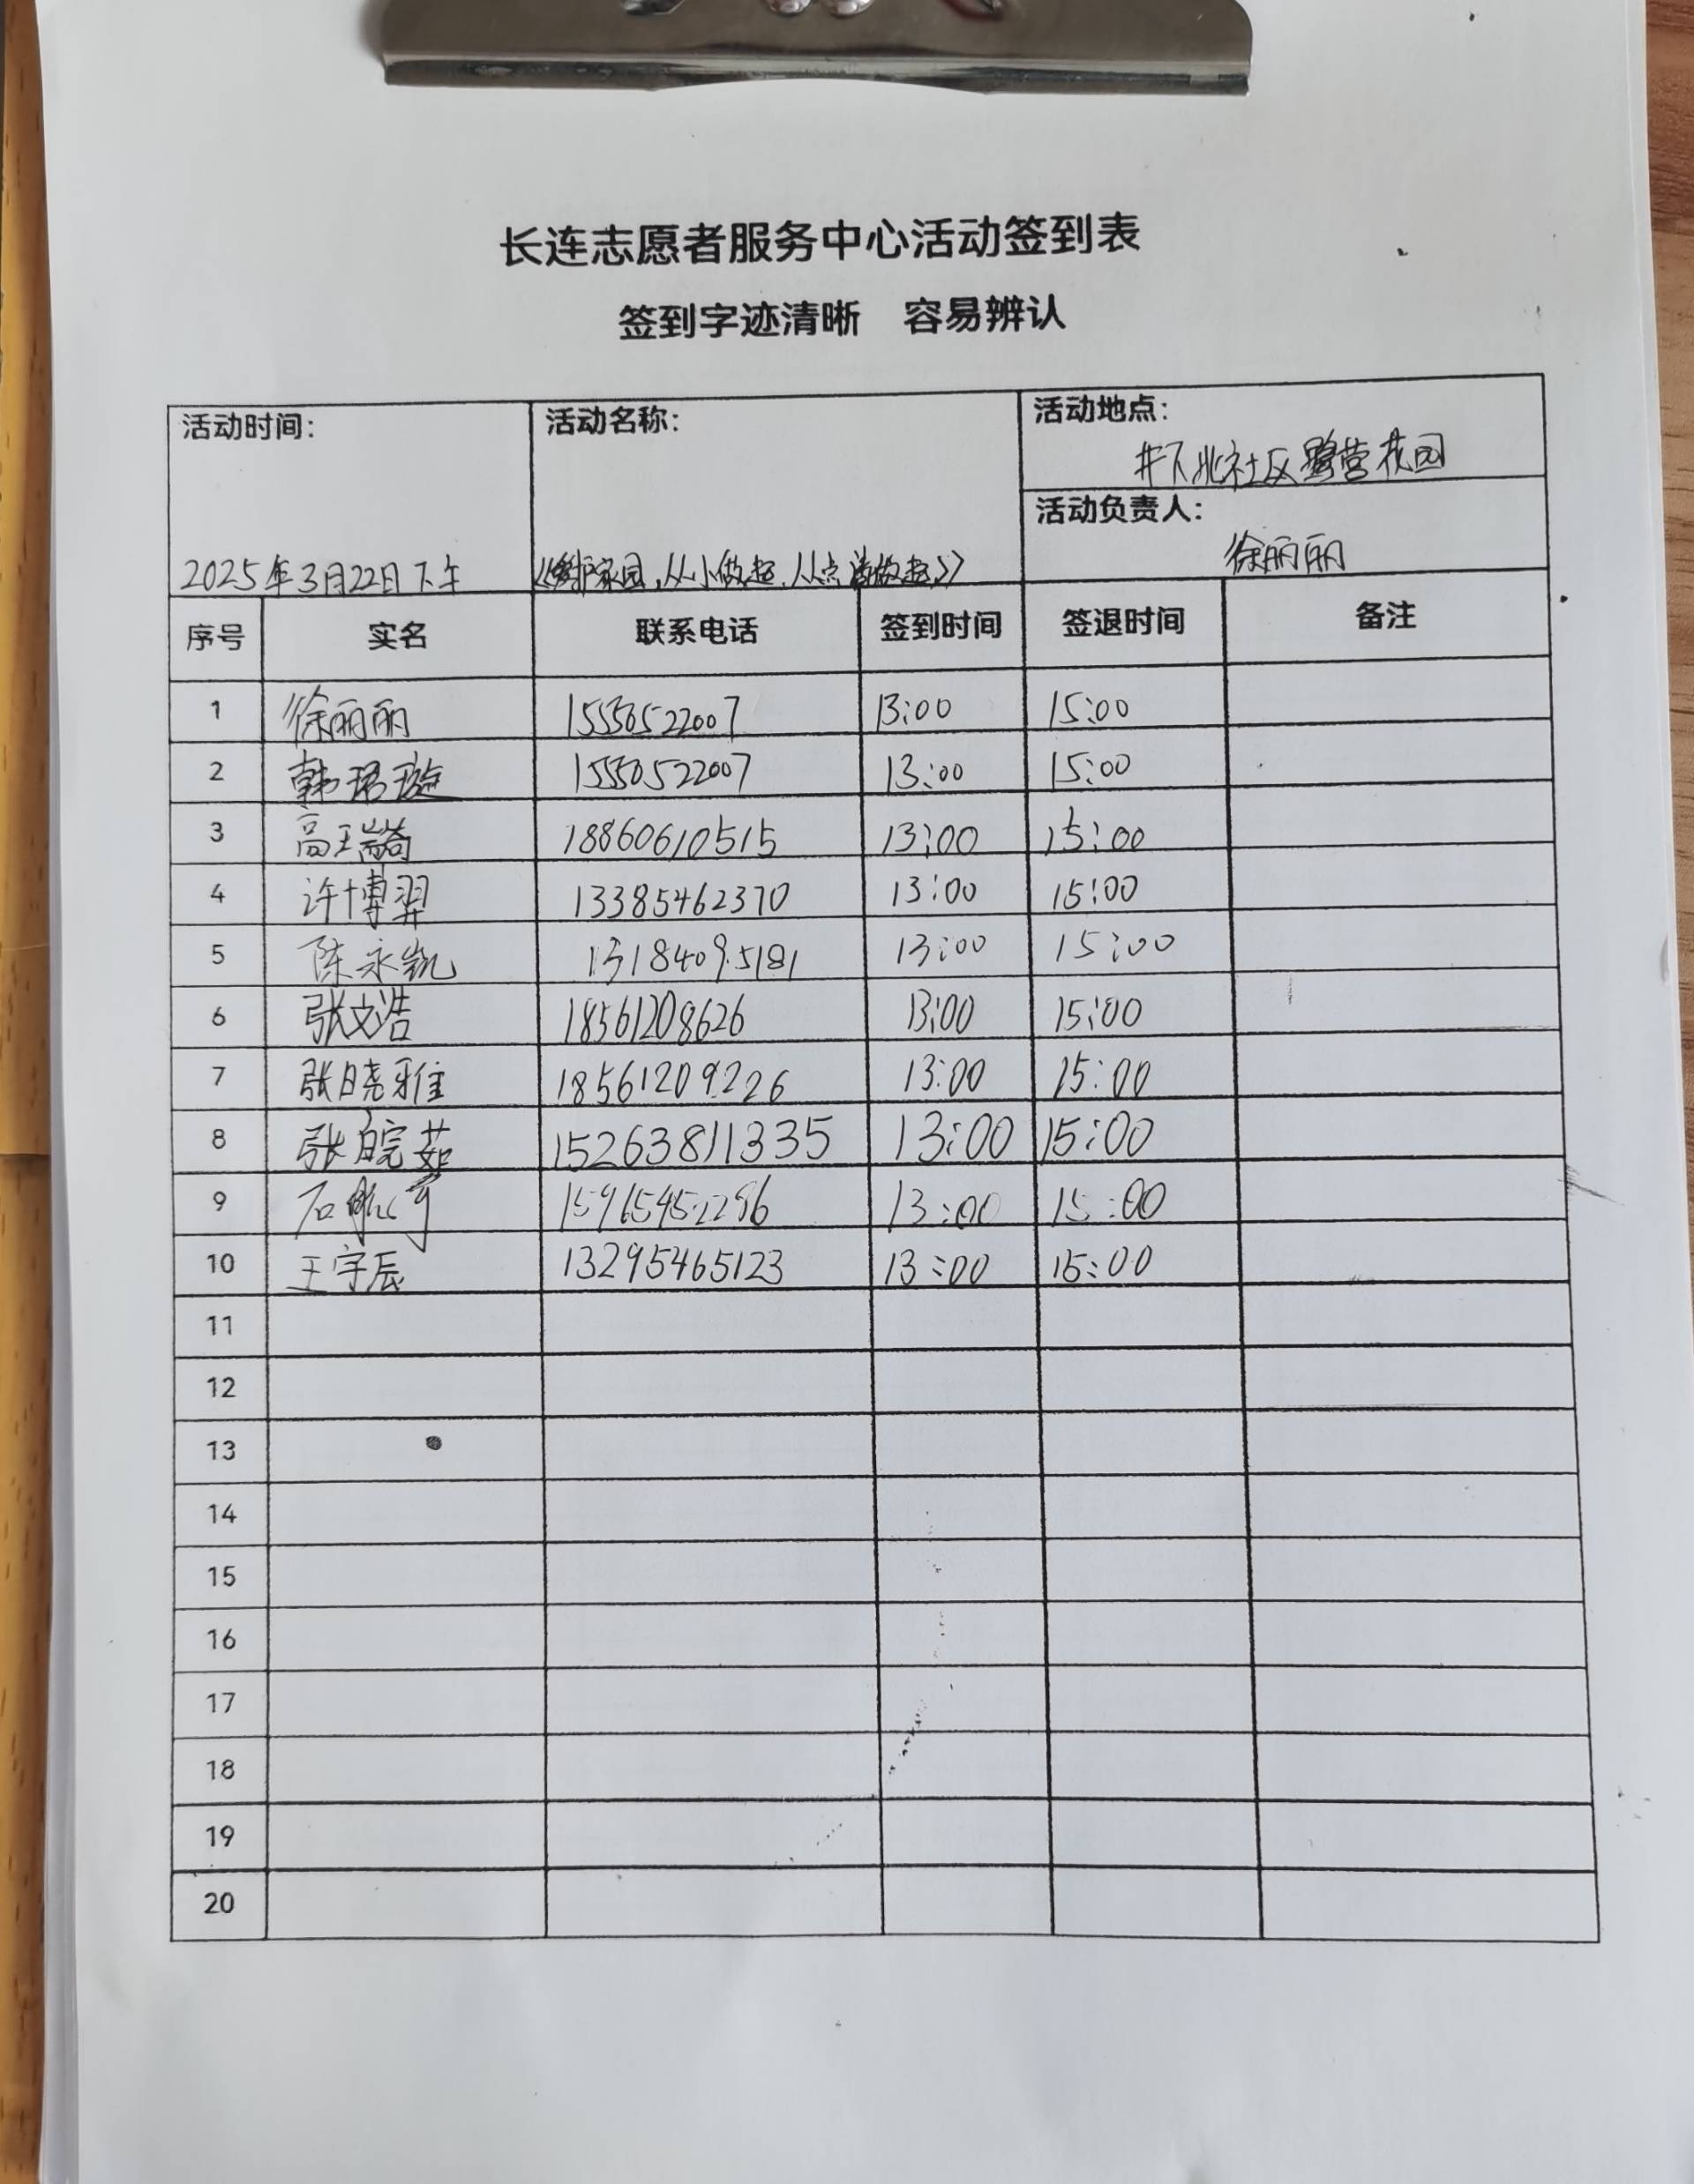 长连志愿者服务中心活动签到表
签到字迹清晰 容易辨认
活动时间: 活动名称: 活动地点:
井下北社区 营花园
活动负责人:
徐丽丽
2025年3月22日下午 《爱护家园,从小做起,从点滴做起》
序号 实名 联系电话 签到时间 签退时间 备注
1 徐丽丽 15550522007 13:00 15:00
2 韩珺璇 15550522007 13:00 15:00
3 高瑞崎 18860610515 13:00 15:00
4 许博羿 13385462370 13:00 15:00
5 陈永凯 13184095181 13:00 15:00
6 张文浩 18561208626 13:00 15:00
7 张晓雅 18561209226 13:00 15:00
8 张皖茹 15263811335 13:00 15:00
9 石 13:00 15:00
10 王宇辰 13295465123 13:00 15:00
11
12
13
14
15
16
17
18
19
20